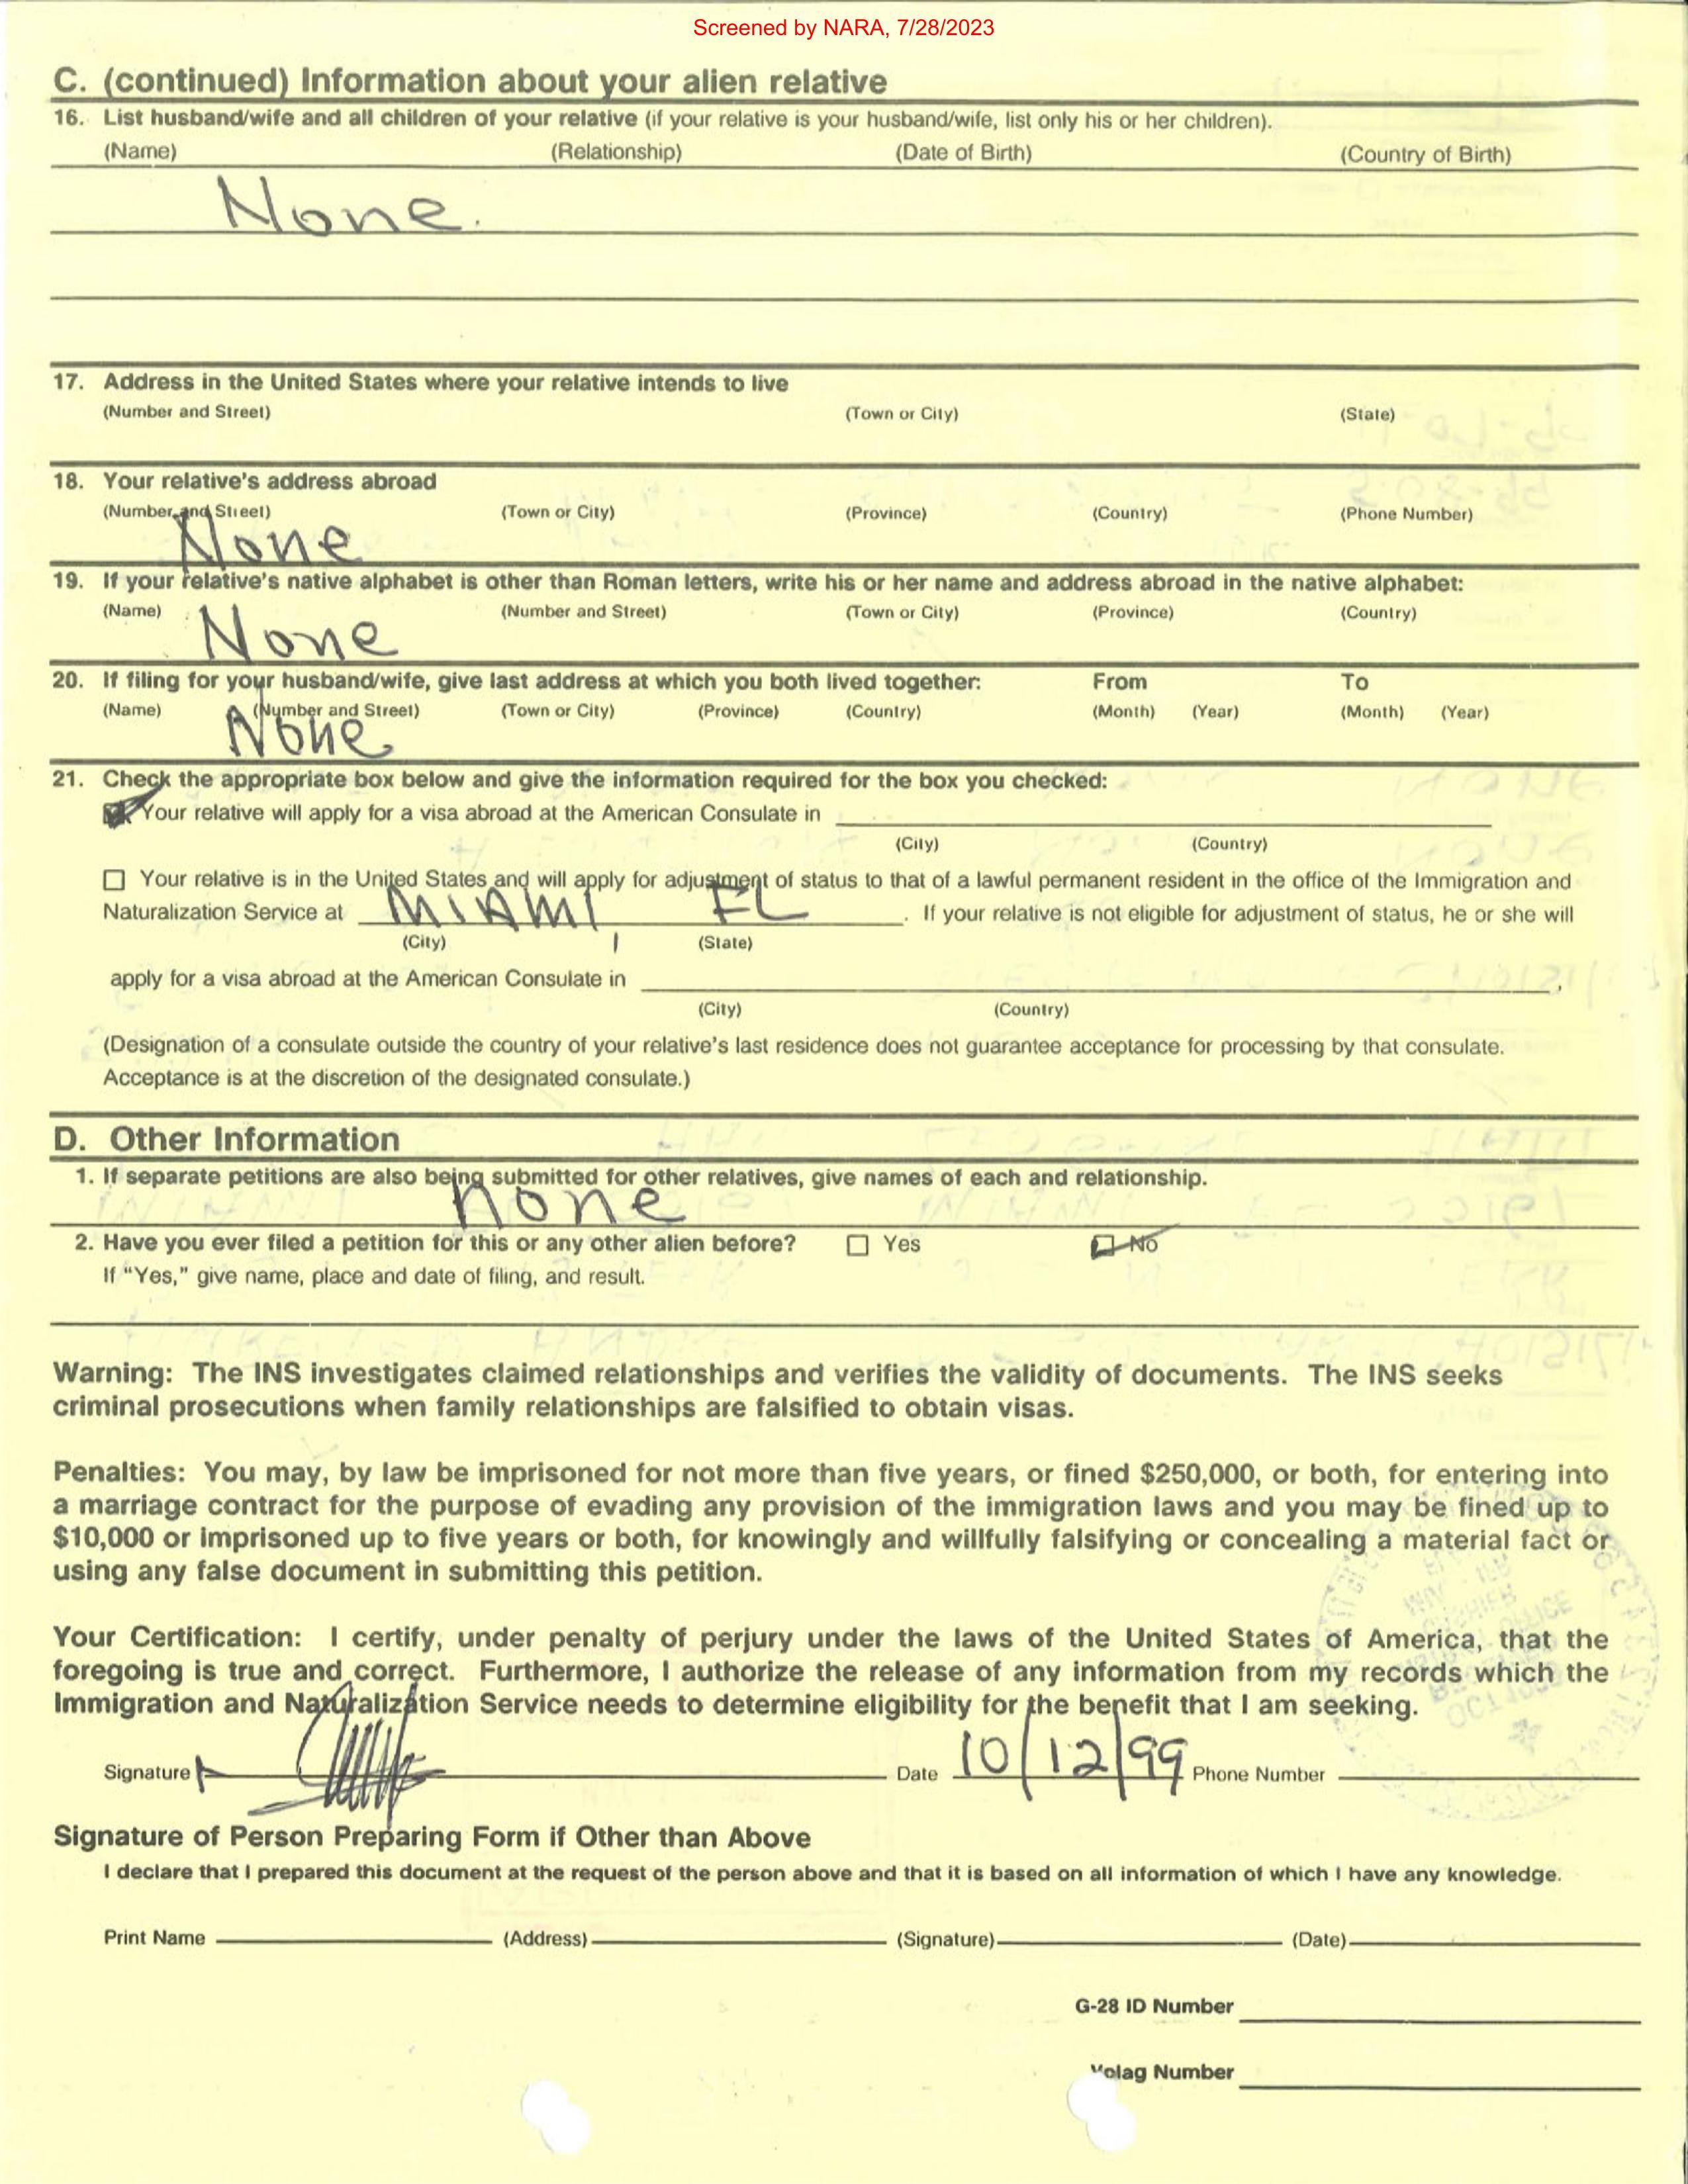 Screened by NARA, 7/28/2023
C. (continued) Information about your alien relative
16. List husband/wife and all children of your relative (if your relative is your husband/wife, list only his or her children).
(Name) (Relationship) (Date of Birth) (Country of Birth)
None.
17. Address in the United States where your relative intends to live
(Number and Street) (Town or City) (State)
18. Your relative's address abroad
(Number and Street) (Town or City) (Province) (Country) (Phone Number)
None
19. If your relative's native alphabet is other than Roman letters, write his or her name and address abroad in the native alphabet:
(Name) (Number and Street) (Town or City) (Province) (Country)
None
20. If filing for your husband/wife, give last address at which you both lived together: From To
(Name) (Number and Street) (Town or City) (Province) (Country) (Month) (Year) (Month) (Year)
None
21. Check the appropriate box below and give the information required for the box you checked:
Your relative will apply for a visa abroad at the American Consulate in
(City) (Country)
Your relative is in the United States and will apply for adjustment of status to that of a lawful permanent resident in the office of the Immigration and
Naturalization Service at MIAMI, FL . If your relative is not eligible for adjustment of status, he or she will
(City) (State)
apply for a visa abroad at the American Consulate in .
(City) (Country)
(Designation of a consulate outside the country of your relative's last residence does not guarantee acceptance for processing by that consulate.
Acceptance is at the discretion of the designated consulate.)
D. Other Information
1. If separate petitions are also being submitted for other relatives, give names of each and relationship.
none
2. Have you ever filed a petition for this or any other alien before? Yes No
If "Yes," give name, place and date of filing, and result.
Warning: The INS investigates claimed relationships and verifies the validity of documents. The INS seeks
criminal prosecutions when family relationships are falsified to obtain visas.
Penalties: You may, by law be imprisoned for not more than five years, or fined $250,000, or both, for entering into
a marriage contract for the purpose of evading any provision of the immigration laws and you may be fined up to
$10,000 or imprisoned up to five years or both, for knowingly and willfully falsifying or concealing a material fact or
using any false document in submitting this petition.
Your Certification: I certify, under penalty of perjury under the laws of the United States of America, that the
foregoing is true and correct. Furthermore, I authorize the release of any information from my records which the
Immigration and Naturalization Service needs to determine eligibility for the benefit that I am seeking.
Signature Date 10/12/99 Phone Number
Signature of Person Preparing Form if Other than Above
I declare that I prepared this document at the request of the person above and that it is based on all information of which I have any knowledge.
Print Name (Address) (Signature) (Date)
G-28 ID Number
Volag Number